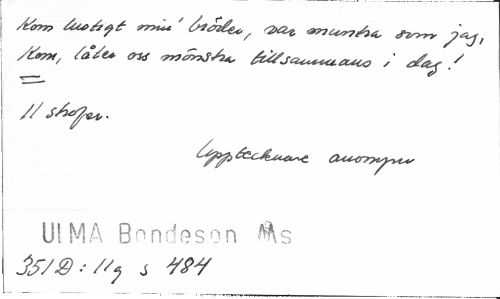 Kom lustigt min' bröder, var muntra som jag,
Kom, låter oss mönstra tillsammans i dag!
11 strofer.
Upptecknare anonym
ULMA Bondeson Ms
351 D: 11q s 484